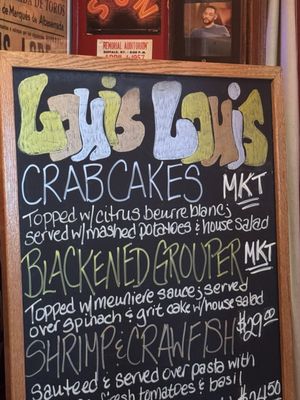 MEMORIAL AUDITORIUM
Louis Louis
CRABCAKES MKT
Topped w/citrus beurre blanc;
served w/mashed potatoes & house salad
BLACKENED GROUPER MKT
Topped w/meuniere sauce; served
over spinach & grit cake w/house salad
SHRIMP & CRAWFISH $29.00
sauteed & served over pasta with
fresh tomatoes & basil
$24.50